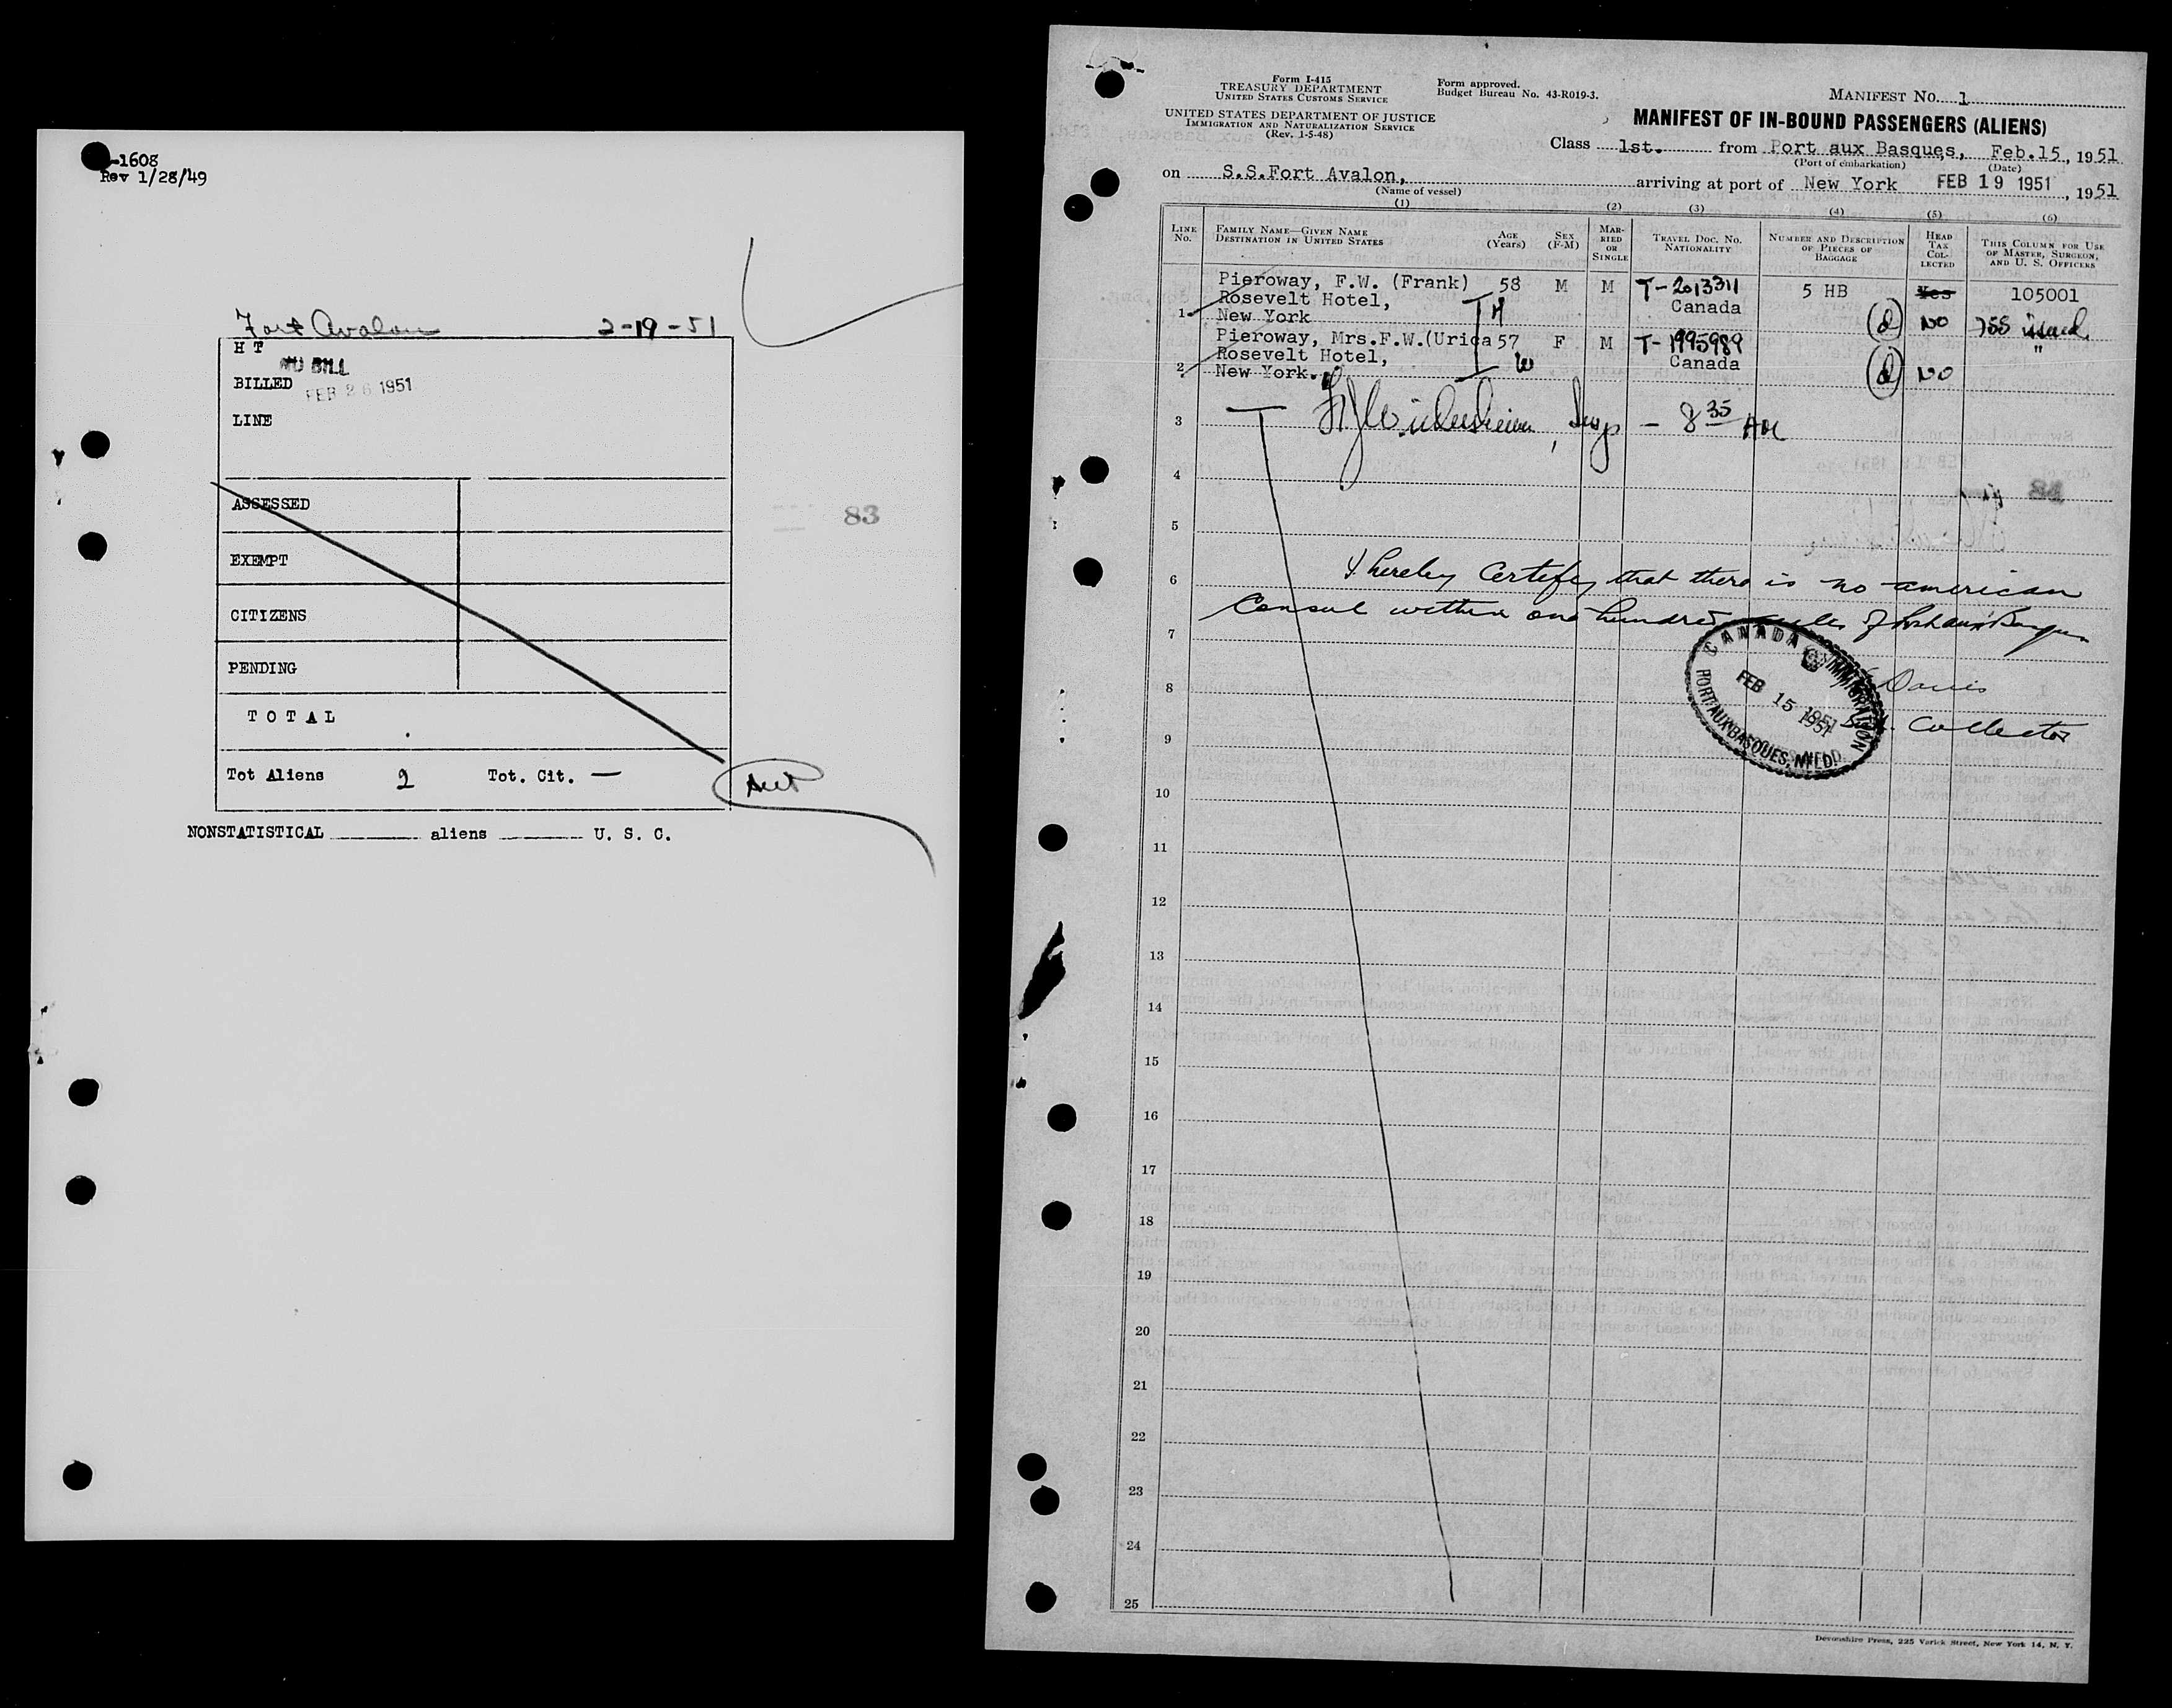 -1608
Rev 1/28/49
Fort Avalon 2-19-51
H T
NO BILL
BILLED FEB 26 1951
LINE
ASSESSED
EXEMPT
CITIZENS
PENDING
T O T A L
Tot Aliens 2 Tot. Cit. —
NONSTATISTICAL aliens U. S. C.
83
Form I-415
TREASURY DEPARTMENT
UNITED STATES CUSTOMS SERVICE
UNITED STATES DEPARTMENT OF JUSTICE
IMMIGRATION AND NATURALIZATION SERVICE
(Rev. 1-5-48)
Form approved.
Budget Bureau No. 43-R019-3.
MANIFEST NO. 1
MANIFEST OF IN-BOUND PASSENGERS (ALIENS)
Class 1st. from Port aux Basques, Feb.15, 1951
(Port of embarkation) (Date)
on S.S.Fort Avalon, arriving at port of New York FEB 19 1951, 1951
(Name of vessel)
(1) (2) (3) (4) (5) (6)
LINE No.
FAMILY NAME—GIVEN NAME
DESTINATION IN UNITED STATES
AGE (Years)
SEX (F-M)
MARRIED OR SINGLE
TRAVEL DOC. NO. NATIONALITY
NUMBER AND DESCRIPTION OF PIECES OF BAGGAGE
HEAD TAX COLLECTED
THIS COLUMN FOR USE OF MASTER, SURGEON, AND U. S. OFFICERS
Pieroway, F.W. (Frank) 58 M M T-2013311 5 HB Yes 105001
Rosevelt Hotel, H Canada
1 New York (d) NO 755 issued
Pieroway, Mrs.F.W.(Urica 57 F M T-1995989 "
Rosevelt Hotel, W Canada
2 New York. (d) NO
3 Insp - 8 35 AM
4
84
5
6 I hereby Certify that there is no american
Consul within one hundred miles of Port aux Basques
7
CANADA IMMIGRATION
FEB 15 1951
PORT AUX BASQUES, NFLD.
8 Davis
Collector
9
10
11
12
13
14
15
16
17
18
19
20
21
22
23
24
25
Devonshire Press, 225 Varick Street, New York 14, N. Y.